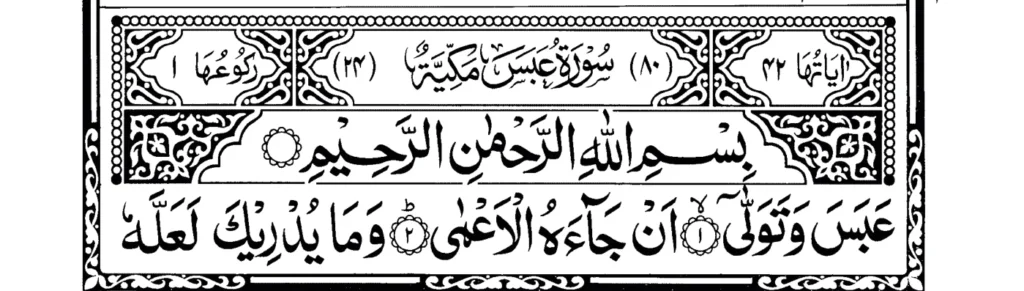 اٰیَاتُهَا ۴۲ (۸۰) سُوْرَةُ عَبَسَ مَكِّيَّةٌ (۲۴) رُكُوْعُهَا ۱
بِسْمِ اللّٰهِ الرَّحْمٰنِ الرَّحِيْمِ
عَبَسَ وَتَوَلّٰۤى ۙ﴿۱﴾ اَنْ جَآءَهُ الْاَعْمٰى ؕ﴿۲﴾ وَمَا يُدْرِيْكَ لَعَلَّهٗ